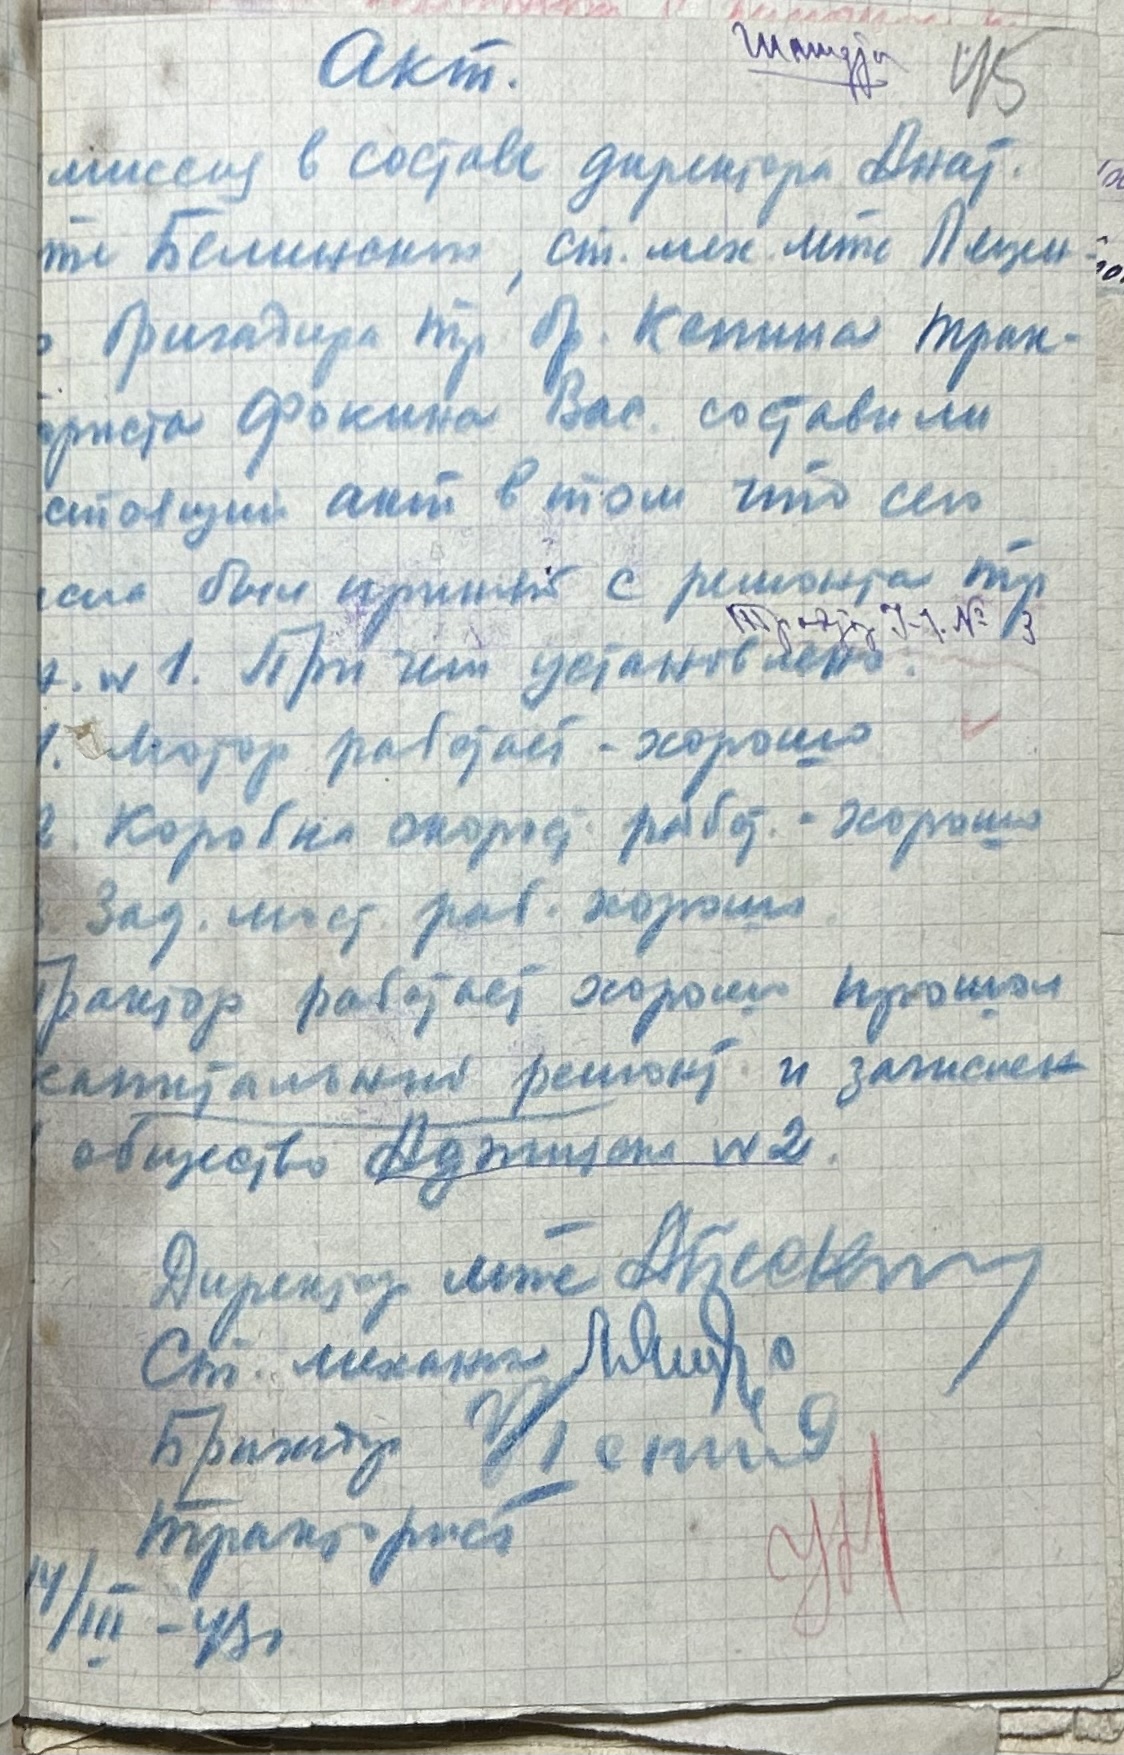 Акт.
45
миссия в составе директора Анат.
мте Белинский, ст. мех. мте Пецен-
о бригадира тр. бр. Кепина трак-
ориста Фокина Вас. составили
стоящий акт в том что сего
исла был принят с ремонта тр
№ 3
т. №1. При чем установлено.
1. Мотор работает - хорошо
2. Коробка скорост. работ. - хорошо
Зад. мост. раб. хорошо.
Трактор работает хорошо прошол
капитальный ремонт и зачислен
общество Аджицека №2.
Директор мте
Ст. механик
Бригадир
Тракторист
14/III - 43г